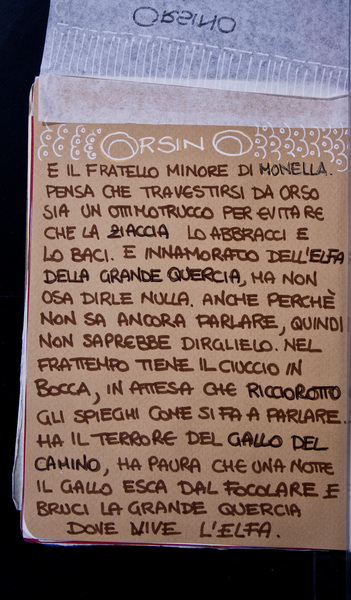 ORSINO
ORSINO
E IL FRATELLO MINORE DI MONELLA.
PENSA CHE TRAVESTIRSI DA ORSO
SIA UN OTTIMOTRUCCO PER EVITARE
CHE LA ZIACCIA LO ABBRACCI E
LO BACI. E INNAMORATO DELL'ELFA
DELLA GRANDE QUERCIA, MA NON
OSA DIRLE NULLA. ANCHE PERCHÈ
NON SA ANCORA PARLARE, QUINDI
NON SAPREBBE DIRGLIELO. NEL
FRATTEMPO TIENE IL CIUCCIO IN
BOCCA, IN ATTESA CHE RICCIOROTTO
GLI SPIEGHI COME SI FA A PARLARE.
HA IL TERRORE DEL GALLO DEL
CAMINO, HA PAURA CHE UNA NOTTE
IL GALLO ESCA DAL FOCOLARE E
BRUCI LA GRANDE QUERCIA
DOVE VIVE L'ELFA.